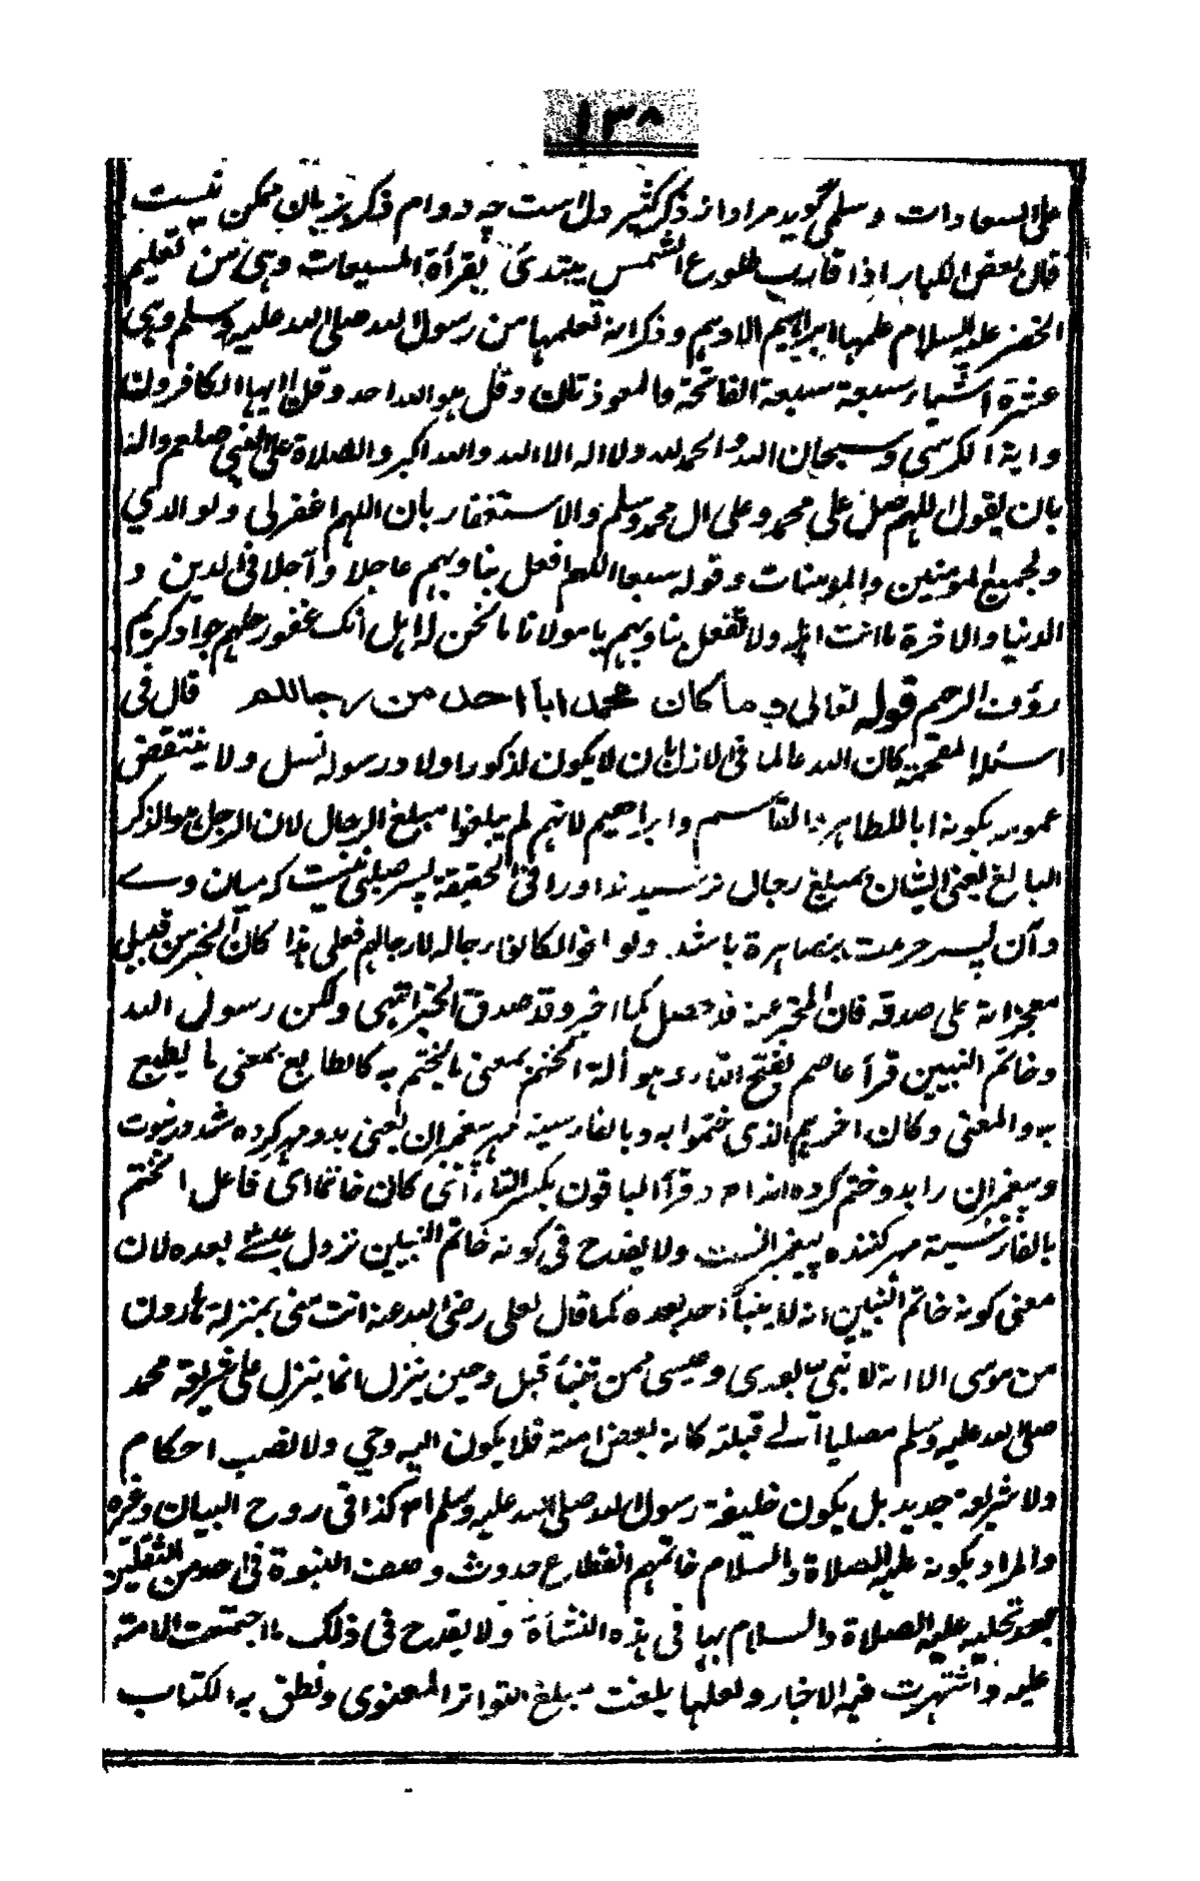 ١٣٨
على السعادات وسلمى گويد مراد از ذكر كثير دل است چه دوام ذكر بزبان ممكن نيست
قال بعض الكبار اذا قارب طلوع الشمس يبتدئ بقرأة المسبعات وهى من تعليم
الخضر عليه السلام علمها ابراهيم الادهم وذكر انه تعلمها من رسول الله صلى الله عليه وسلم وهى
عشرة اشياء سبعة سبعة الفاتحة والمعوذتان وقل هو الله احد وقل يا ايها الكافرون
واية الكرسى وسبحان الله والحمد لله ولا اله الا الله والله اكبر والصلاة على النبى صلعم واله
بان يقول اللهم صل على محمد وعلى ال محمد وسلم والاستغفار بان اللهم اغفر لى ولوالدي
ولجميع المومنين والمومنات وقوله سبعا اللهم افعل بنا وبهم عاجلا وآجلا فى الدين و
الدنيا والاخرة ما انت اهله ولا تفعل بنا وبهم يا مولانا ما نحن له اهل انك غفور حليم جواد كريم
رؤف الرحيم قوله تعالى و ما كان محمد ابا احد من رجالكم قال فى
اسئلة المقحمة كان الله عالما فى الازل ان لا يكون لذكور اولاد رسوله نسل ولا ينتقض
عمومه بكونه ابا للطاهر والقاسم وابراهيم لانهم لم يبلغوا مبلغ الرجال لان الرجل هو الذكر
البالغ يعنى ايشان بمبلغ رجال نرسيدند اورا فى الحقيقة پسر صلبى نيست كه ميان وے
وآن پسر حرمت مصاهرة باشد. ولو بلغوا لكانوا رجاله لا رجالهم فعلى هذا كان الخبر من قبيل
معجزاته على صدقه فان المخبر عنه قد حصل كما اخبر وقد صدق الخبر انتهى ولكن رسول الله
وخاتم النبيين قرأ عاصم بفتح التاء وهو ألة الختم بمعنى ما يختم به كالطابع بمعنى ما يطبع
به والمعنى وكان اخرهم الذى ختموا به وبالفارسية مهر پيغمبران يعنى بدو مهر كرده شد در نبوت
وپيغمبران را بدو ختم كرده اند اه وقرأ الباقون بكسر التاء اى كان خاتما اى فاعل الختم
بالفارسية مهر كننده پيغمبرانست ولا يقدح فى كونه خاتم النبيين نزول عيسے بعده لان
معنى كونه خاتم النبيين انه لا ينبأ احد بعده كما قال لعلى رضى الله عنه انت منى بمنزلة هارون
من موسى الا انه لا نبى بعدى وعيسى ممن تنبأ قبله وحين ينزل انما ينزل على شريعة محمد
صلى الله عليه وسلم مصليا الے قبلته كانه بعض امته فلا يكون اليه وحي ولا نصب احكام
ولا شريعة جديد بل يكون خليفة رسول الله صلى الله عليه وسلم اه كذا فى روح البيان وغيره
والمراد بكونه عليه الصلاة والسلام خاتمهم انقطاع حدوث وصف النبوة فى احد من الثقلين
بعد تحليه عليه الصلاة والسلام بها فى هذه النشأة ولا يقدح فى ذلك ما اجتمعت الامة
عليه واشتهرت فيه الاخبار ولعلها بلغت مبلغ التواتر المعنوى ونطق به الكتاب